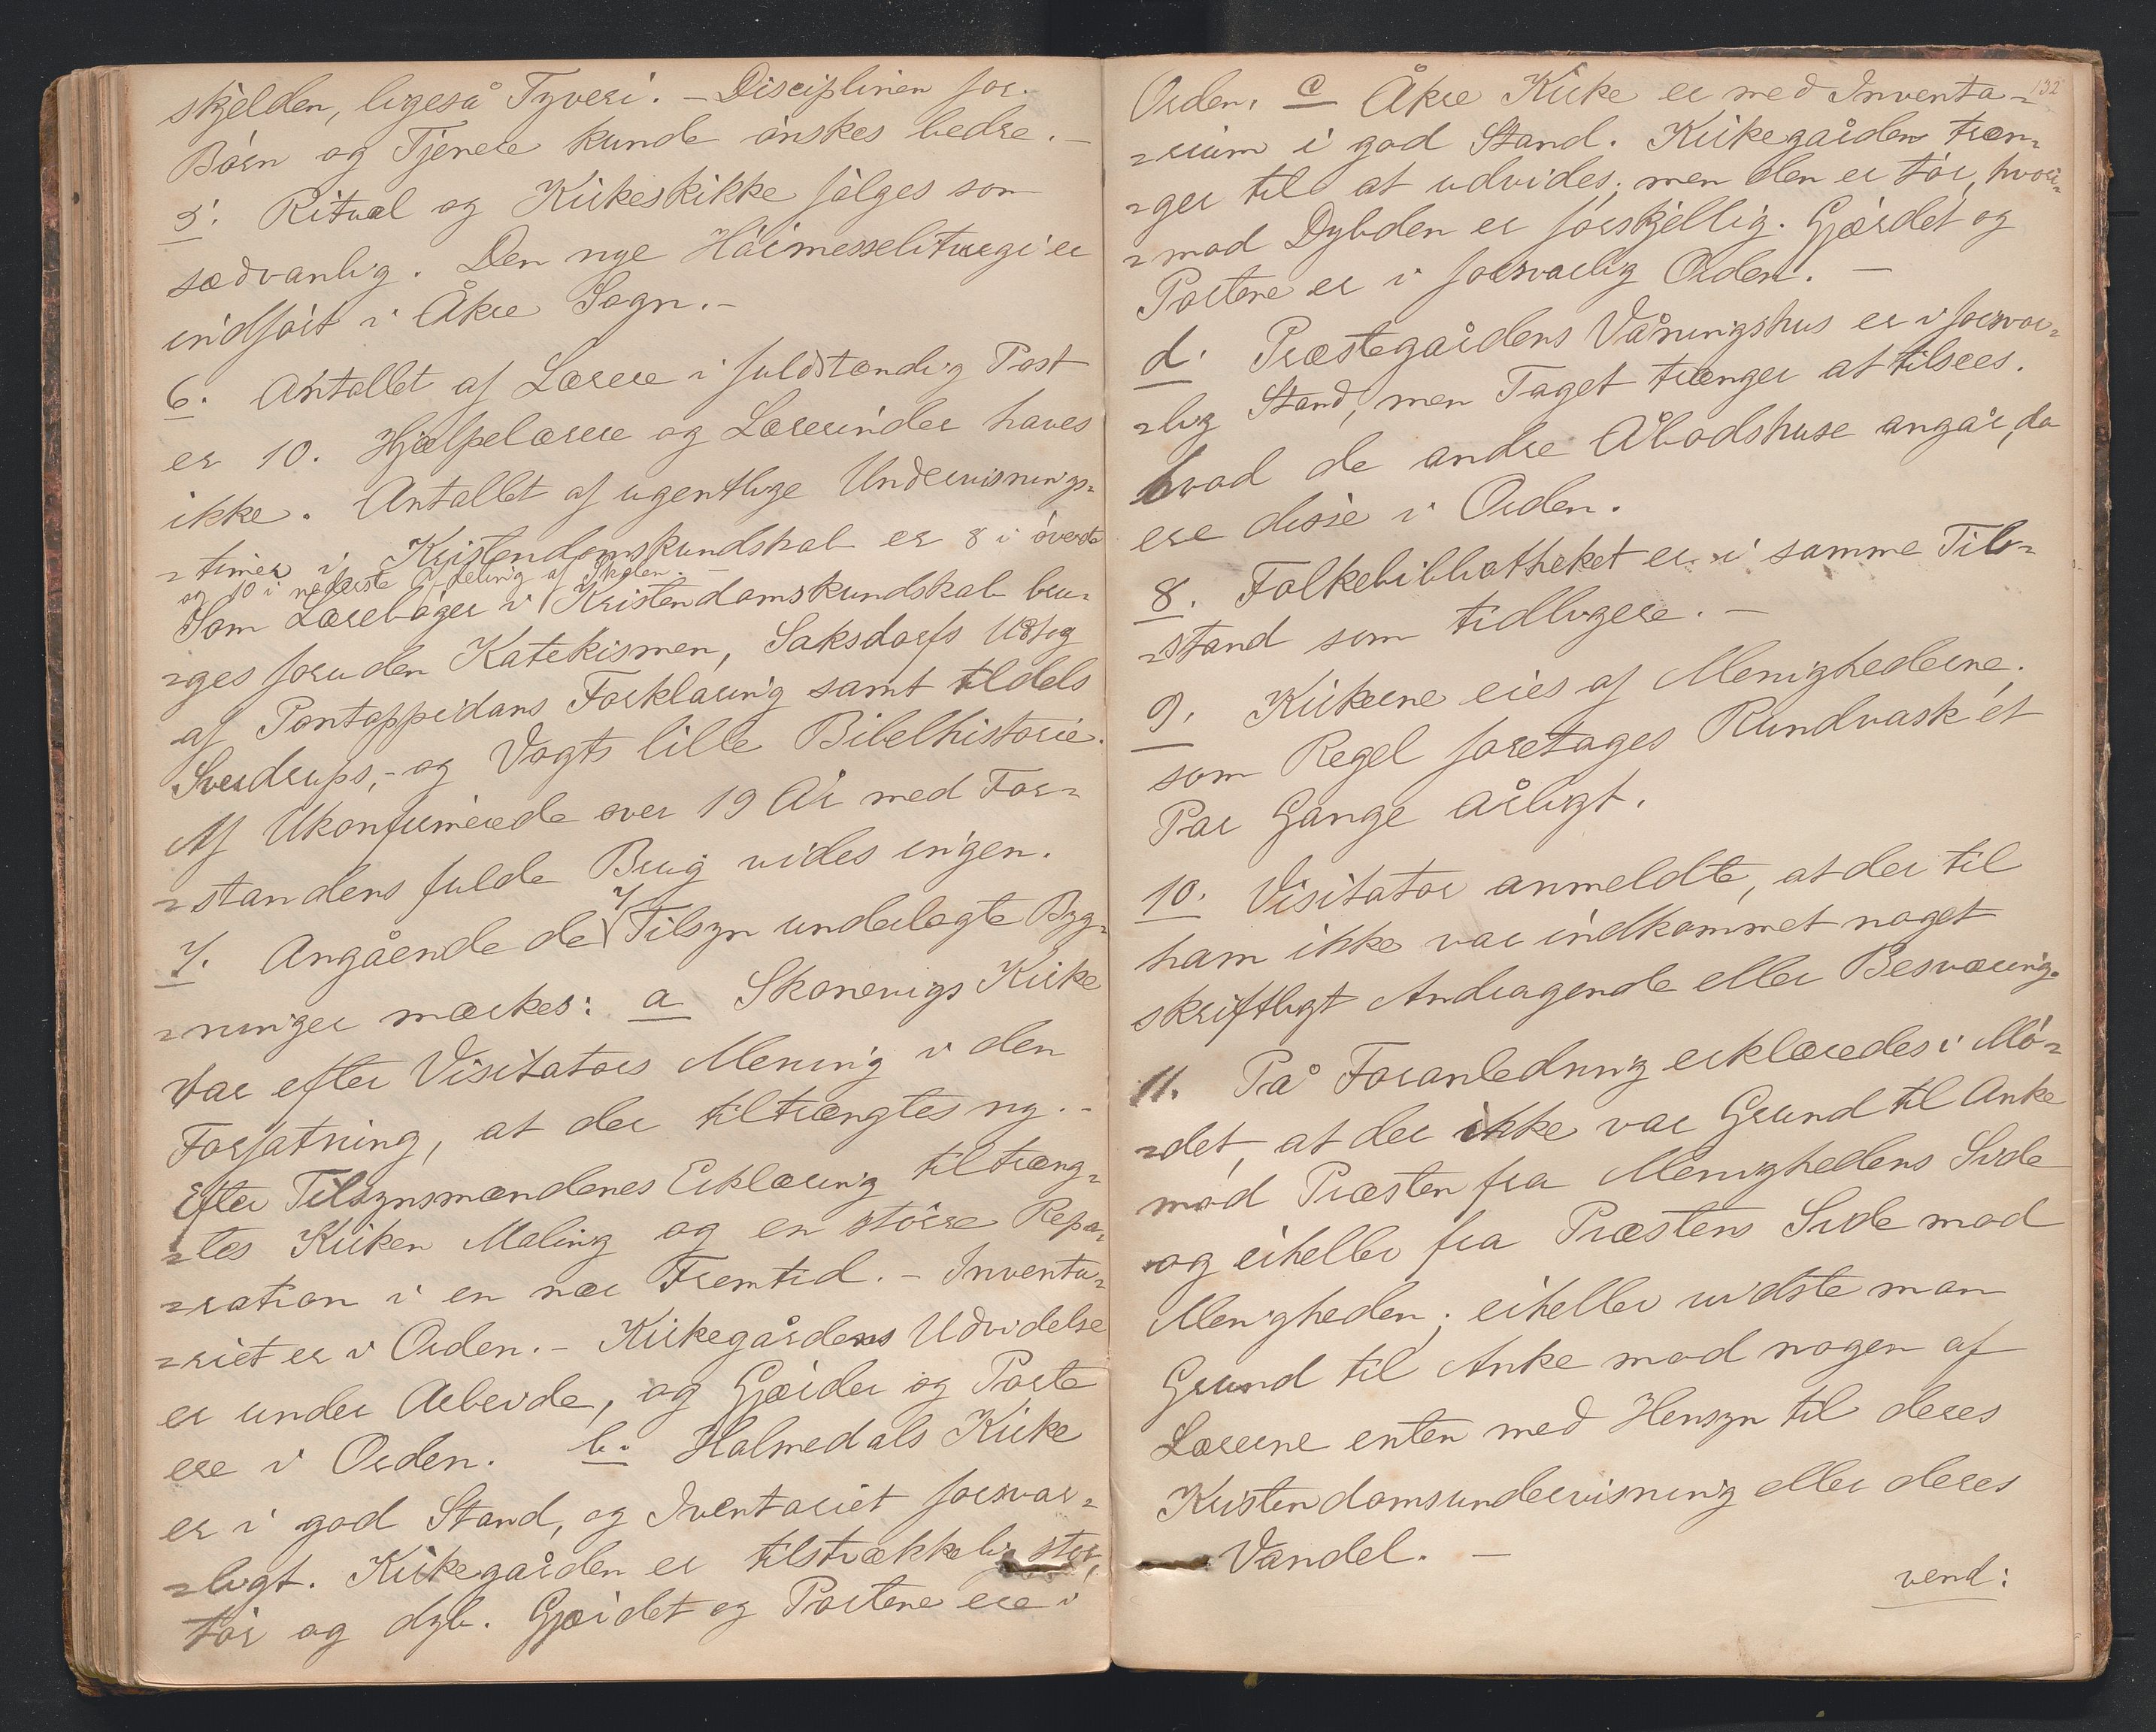 skjelden, ligeså Tyveri. – Disciplinen for
Börn og Tjenere kunde önskes bedre. –
5. Ritual og Kirkeskikke fölges som
sædvanlig. Den nye Höimesseliturgi er
indfört i Åkre Sogn. –
6. Antallet af Lærere i fuldstændig Post
er 10. Hjælpelærere og Lærerinder haves
ikke. Antallet af ugentlige Undervisnings-
-timer i Kristendomskundskab er 8 i överste
og 10 i nederste Afdeling af Skolen. –
Som Læreböger i Kristendomskundskab bru-
-ges foruden Katekismen, Saksdorfs Udtog
af Pontoppidans Forklaring samt tildels
Sverdrups, – og Vogts lille Bibelhistorie.
Af Ukonfirmerede over 19 År med For-
-standens fulde Brug vides ingen.
7. Angående de Tilsyn underlagte Byg-
-ninger mærkes: a Skonevigs Kirke
var efter Visitators Mening i den
Forfatning, at der tiltrængtes ny. –
Efter Tilsynsmændenes Erklæring tiltræng-
-tes Kirken Maling og en större Repa-
-ration i en nær Fremtid. – Inventa-
-riet er i Orden. – Kirkegårdens Udvidelse
er under Arbeide, og Gjærder og Porte
ere i Orden. b. Holmedals Kirke
er i god Stand, og Iventariet forsvar-
-ligt. Kirkegården er tilstrækkelig stor,
tör og dyb. Gjærdet og Portene ere i
132
Orden. c Åkre Kirke er med Inventa-
-rium i god Stand. Kirkegården træn-
-ger til at udvides; men den er tör, hvori-
-mod Dybden er forskjellig. Gjærdet og
Portene er i forsvarlig Orden. –
d. Præstegårdens Våningshus er i forsvar-
-lig Stand, men Taget trænger at tilsees.
hvad de andre Åbodshuse angår, da
ere disse i Orden.
8. Folkebibliotheket er i samme Til-
-stand som tidligere. –
9. Kirkerne eies af Menighederne;
som Regel foretages Rundvask ét
Par Gange årligt.
10. Visitator anmeldte, at der til
ham ikke var indkommet noget
skriftligt Andragende eller Besværing.
11. På Foranledning erklæredes i Mö-
-det, at der ikke var Grund til Anke
mod Præsten fra Menighedens Side
og eiheller fra Præstens Side mod
Menigheden; eiheller vidste man
Grund til Anke mod nogen af
Lærerne enten med Hensyn til deres
Kristendomsundervisning eller deres
Vandel. –
vend: